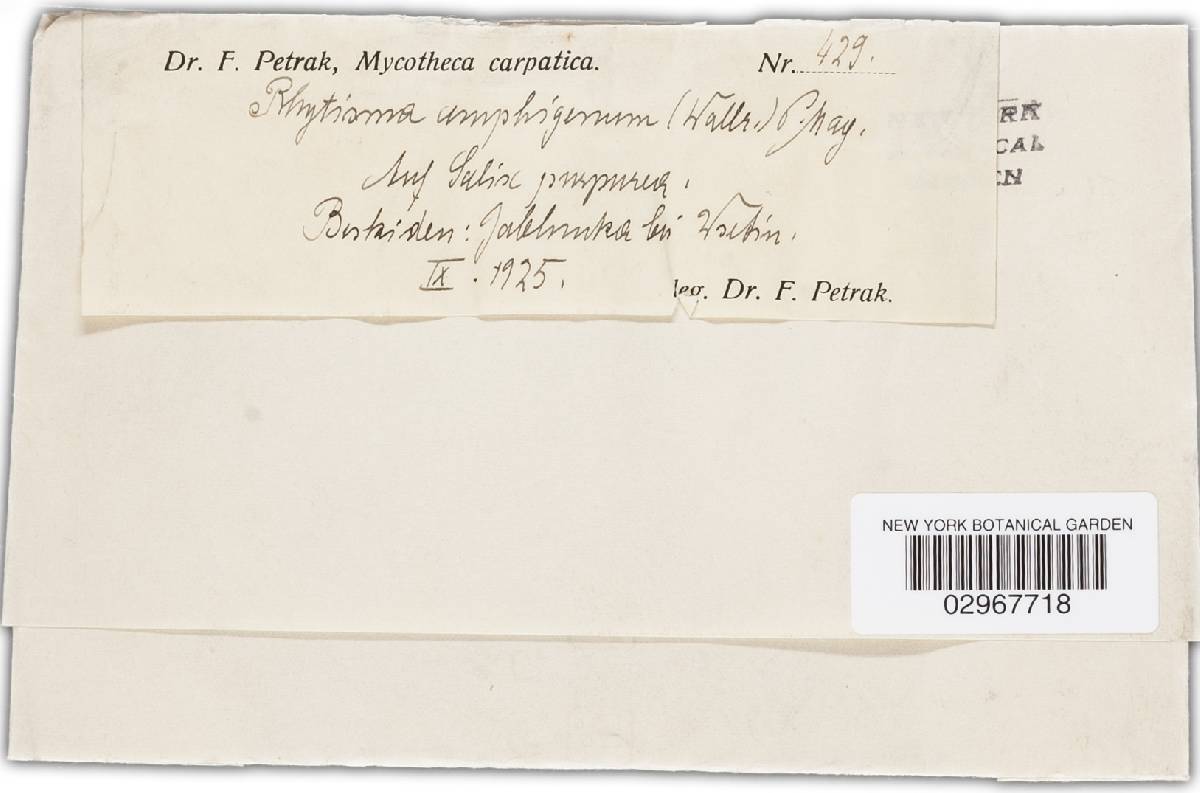 Dr. F. Petrak, Mycotheca carpatica. Nr. 429.
Rhytisma amphigenum (Wallr.) P. Mag.
Auf Salix purpurea.
Beskiden: Jablunka bei Wsetin.
IX. 1925.
leg. Dr. F. Petrak.
RK
CAL
EN
NEW YORK BOTANICAL GARDEN
02967718